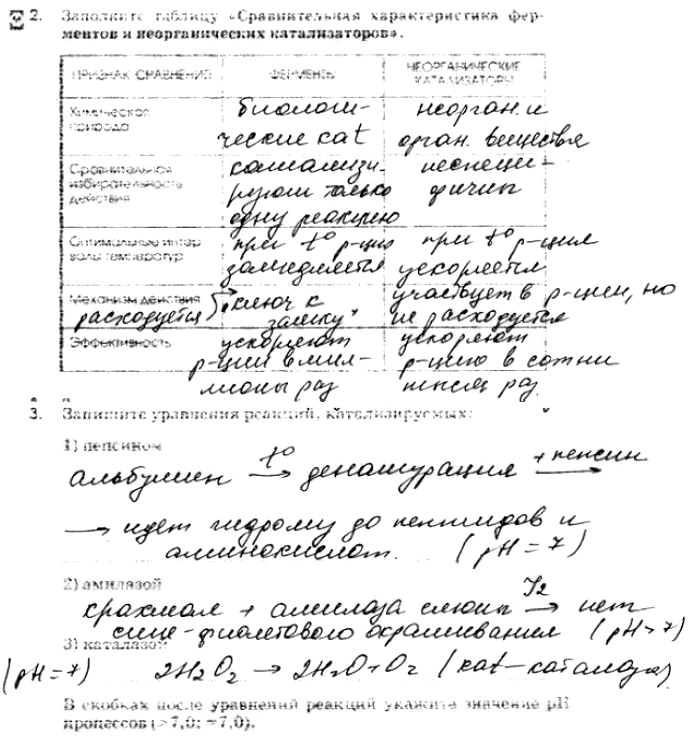 2. Заполните таблицу «Сравнительная характеристика фер-
ментов и неорганических катализаторов».
ПРИЗНАК СРАВНЕНИЯ ФЕРМЕНТЫ НЕОРГАНИЧЕСКИЕ КАТАЛИЗАТОРЫ
Химическая природа
биологи-
ческие cat
неорган. и
орган. вещества
Сравнительная избирательность действия
катализи-
руют только
одну реакцию
неспеци-
фичны
Оптимальные интер
валы температур
при t° р-ция
замедляется
при t° р-ция
ускоряется
Механизм действия
расходуется
"ключ к
замку"
участвует в р-ции, но
не расходуется
Эффективность
ускоряют
р-ции в мил-
лионы раз
ускоряют
р-цию в сотни
тысяч раз.
3. Запишите уравнения реакций, катализируемых:
1) пепсином
альбумин t° → денатурация + пепсин →
→ идет гидролиз до пептидов и
аминокислот. (pH = 7)
2) амилазой
крахмал + амилаза слюны J2 → нет
сине-фиолетового окрашивания (pH > 7)
3) каталазой
(pH = 7) 2H2O2 → 2H2O + O2 (kat – каталаза)
В скобках после уравнений реакций укажите значение pH
процессов (>7,0; =7,0).